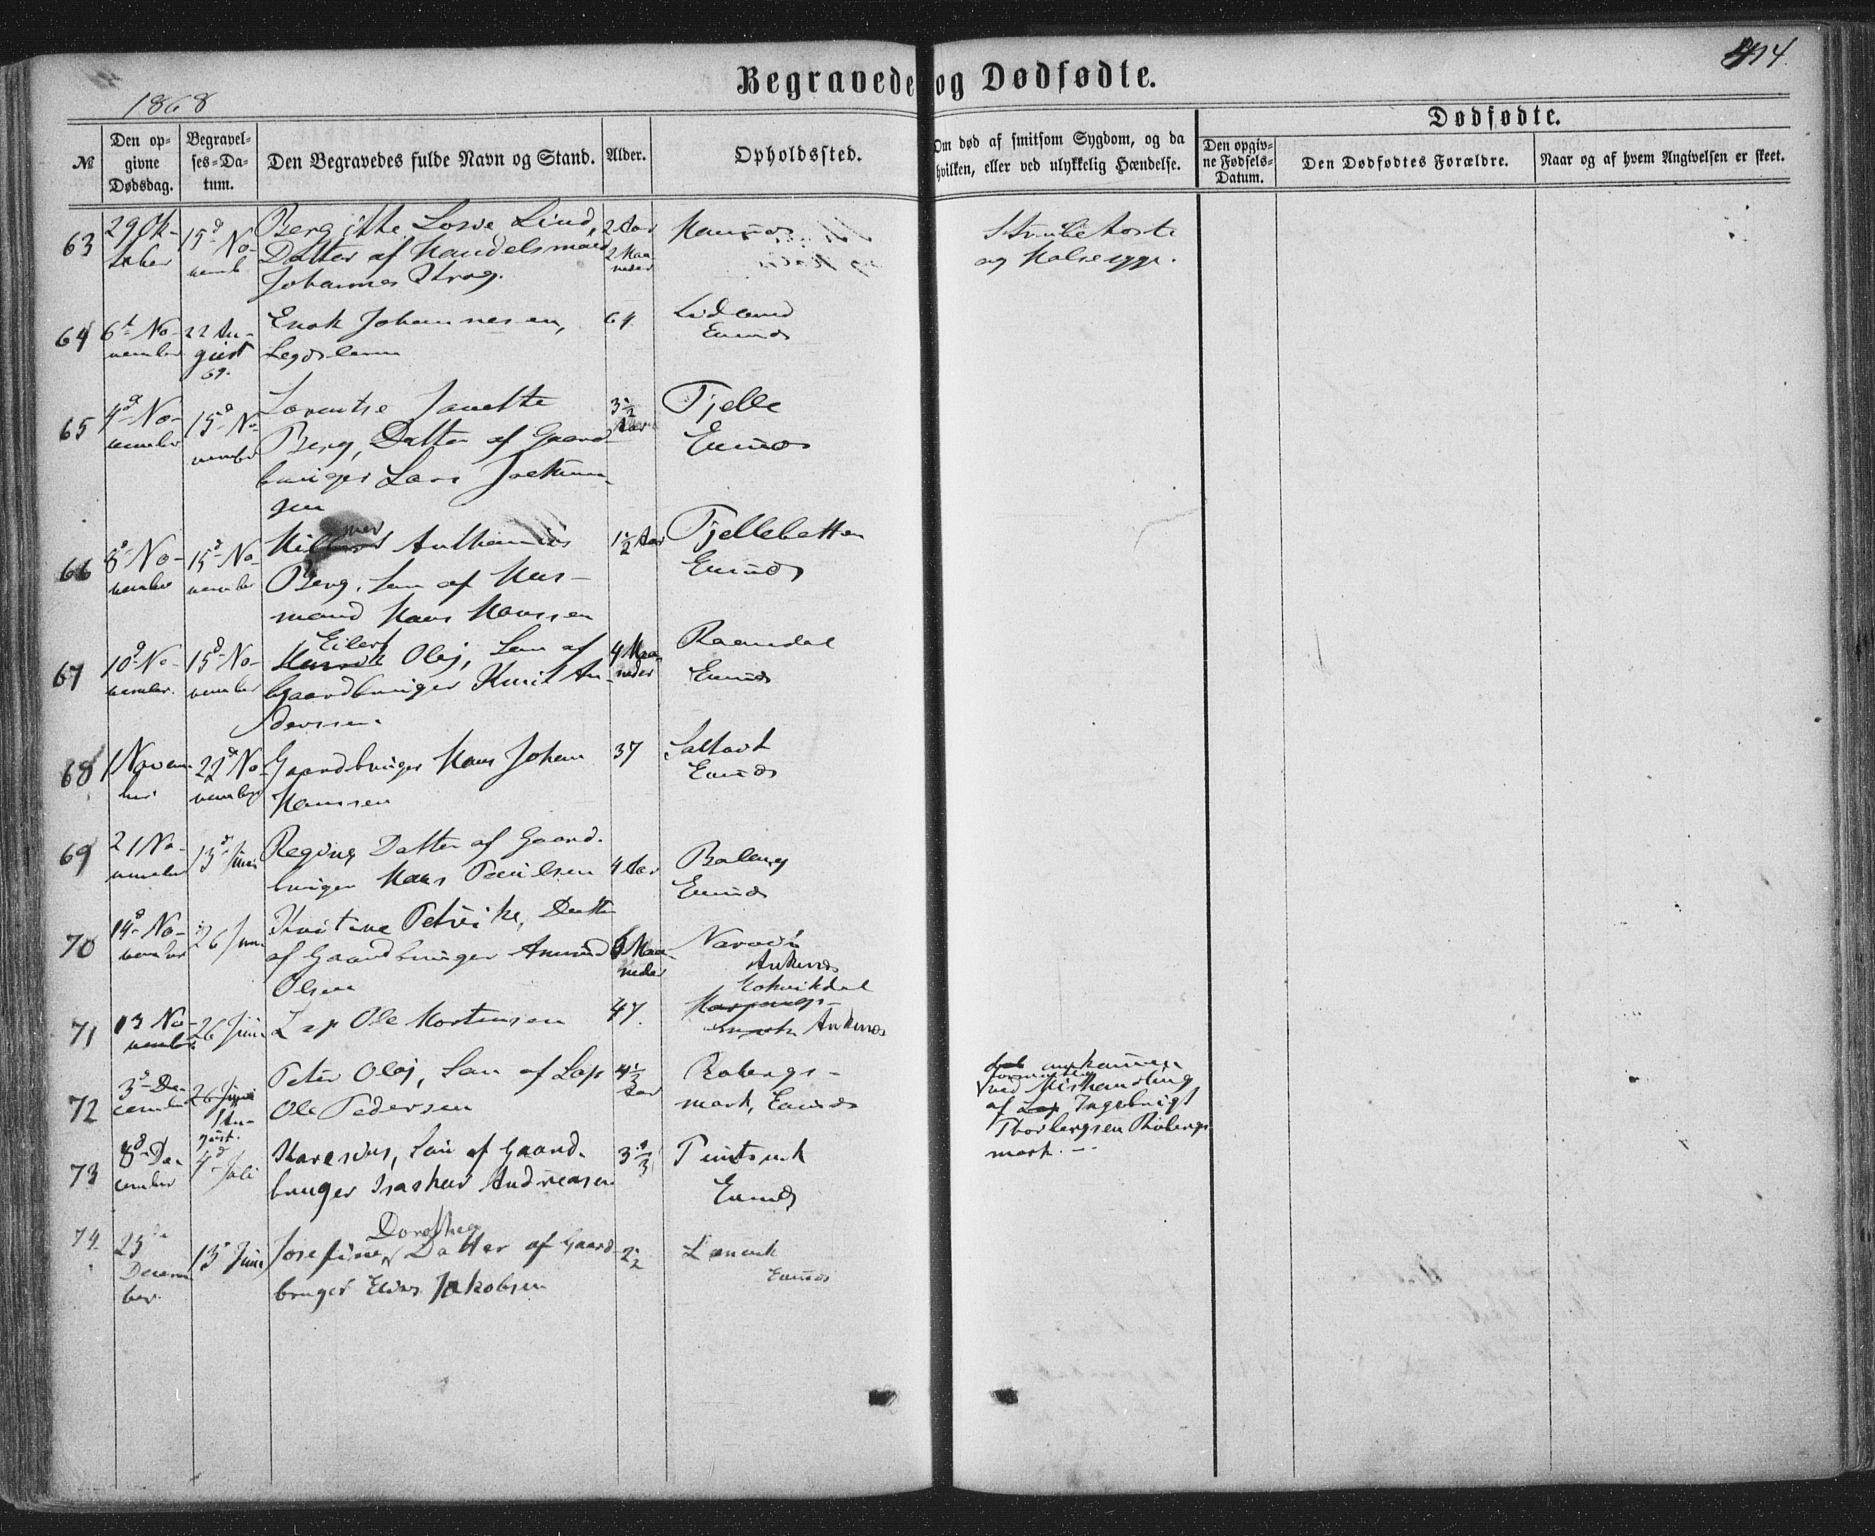 414.
Begravede og Dødfødte.
1868
Dødfødte.
№
Den op-
givne
Dødsdag.
Begravel-
ses-Da-
tum.
Den Begravedes fulde Navn og Stand.
Alder.
Opholdssted.
Om død af smitsom Sygdom, og da
hvilken, eller ved ulykkelig Hændelse.
Den opgiv-
ne Fødsels-
Datum.
Den Dødfødtes Forældre.
Naar og af hvem Angivelsen er skeet.
63
29 Ok-
tober
15d No-
vemb
Bergitte Lovise Lind,
Datter af Handelsmand
Johannes Krog.
2 Aar
2 Maa-
neder
Strubehoste
og Halssyge.
64
6t No-
vember
22 Au-
gust
69.
Enok Johannesen,
Legdslem
64
Lidland
Evenes
65
4d No-
vember
15d No-
vember
Lorentse Janette
Berg, Datter af Gaard-
bruger Lars Joakim-
sen
3 1/2
Aar
Tjelle
Evenes
66
8d No-
vember
15d No-
vember
Hilmer Anthonius
Berg, Søn af Hus-
mand Hans Hanssen
1 1/2 Aar
Tjellebotten
Evenes
67
10d No-
vember
15d No-
vember
Eilert
Olaj, Søn af
Gaardbruger Knut An-
derssen.
4 Maa-
neder
Ramdal
Evenes
68
1 Novem-
ber
22d No-
vember
Gaardbruger Hans Johan
Hanssen
37
Saltvat
Evenes
69
21 No-
vember
13d Juni
Regine, Datter af Gaard-
bruger Hans Paulsen
4 Aar
Boberg
Evenes
70
14d No-
vember
26 Juni
Kristine Petrike, Datter
af Gaardbruger Amund
Olsen
6 Maa-
neder
Narvik
Ankenes
71
13 No-
vember
26 Juni
Lap Ole Mortensen
47.
mark Ankenes
72
3d De-
cember
26 Juni
Au-
gust.
Peter Olaj, Søn af Lap
Ole Pedersen
4 1/2
Aar
Robergs-
mark, Evenes
omkommen
ved Mishandling
af Lap Ingebrigt
Thorbergsen Robergs-
mark. --
73
8d De-
cember
4d Juli
Karesius, Søn af Gaard-
bruger Isaskar Andreasen
3 1/3
Evenes
74
25
Decem-
ber.
13d Juni
Dorothea
Josefine, Datter af Gaard-
bruger Elias Jakobsen
2 1/2
Lenvik
Evenes